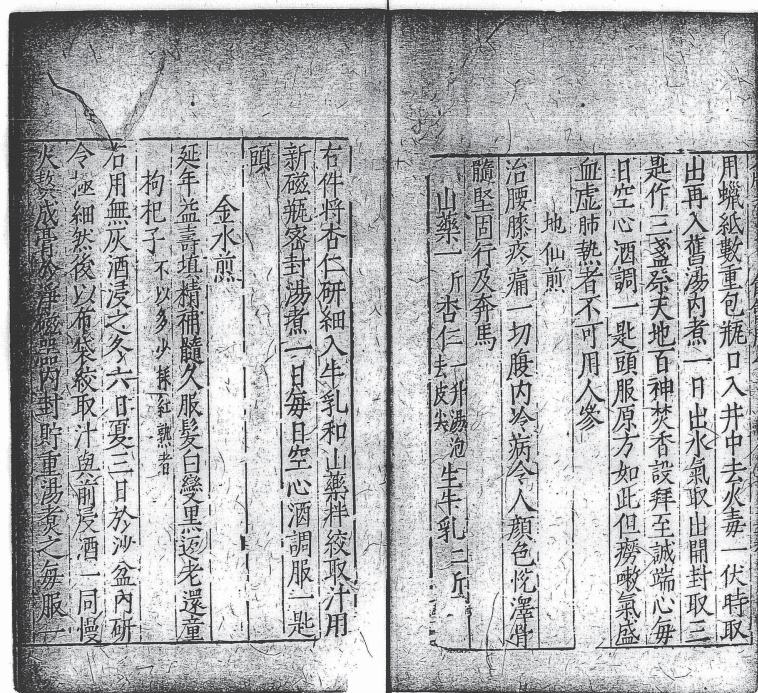 用蠟紙數重包瓶口入井中去火毒一伏時取
出再入舊湯內煮一日出水氣取出開封取三
匙作三盞祭天地百神焚香設拜至誠端心每
日空心酒調一匙頭服原方如此但癆嗽氣盛
血虛肺熱者不可用人參
地仙煎
治腰膝疼痛一切腹內冷病令人顏色悅澤骨
髓堅固行及奔馬
山藥一斤杏仁一升湯泡去皮尖生牛乳二斤
右件將杏仁研細入牛乳和山藥拌絞取汁用
新磁瓶密封湯煮一日每日空心酒調服一匙
頭
金水煎
延年益壽填精補髓久服髮白變黑返老還童
枸杞子不以多少採紅熟者
右用無灰酒浸之冬六日夏三日於沙盆內研
令極細然後以布袋絞取汁與前浸酒一同慢
火熬成膏於淨磁器內封貯重湯煮之每服一